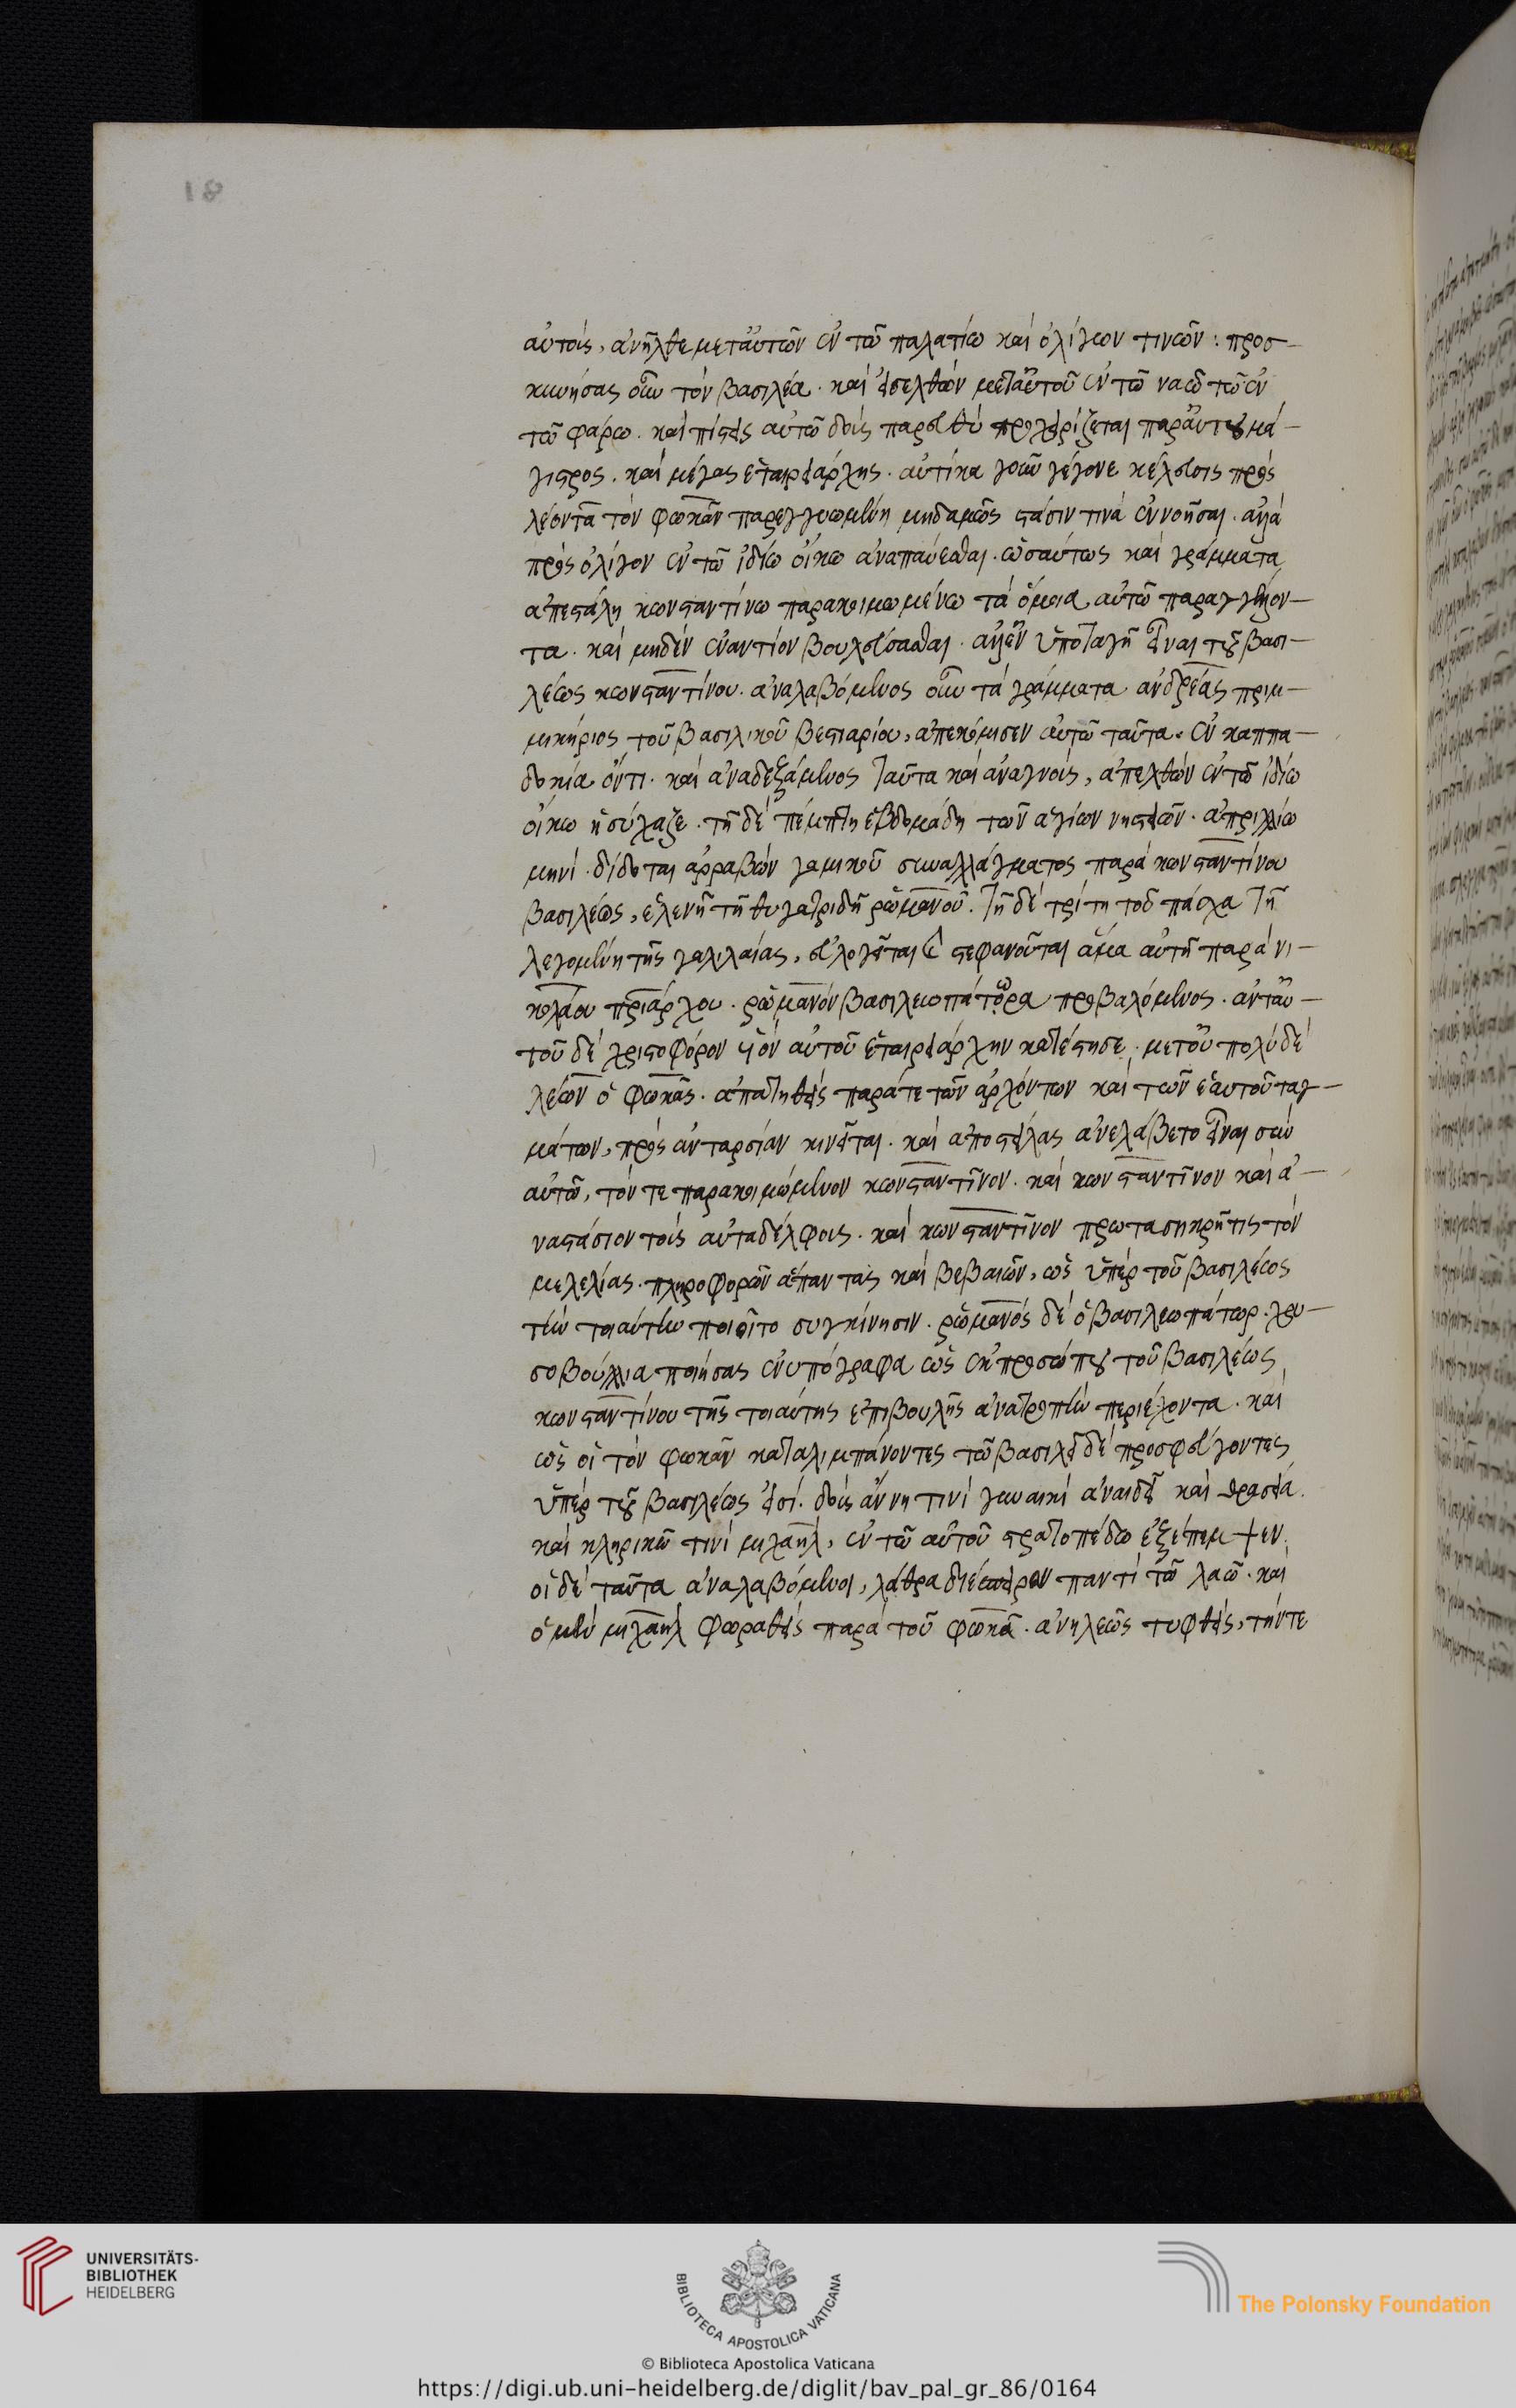 18
αὐτοῖς, ἀνῆλθε μετ' αὐτῶν ἐν τῶ παλατίω καὶ ὀλίγων τινῶν : προσ-
κυνήσας οὖν τὸν βασιλέα. καὶ εἰσελθὼν μετ' αὐτοῦ ἐν τῶ ναῶ τῶ ἐν
τῶ φάρω. καὶ πίστεις αὐτῶ δοὺς παρευθὺ προχειρίζεται παρ' αὐτοῦ μά-
γιστρος. καὶ μέγας ἑταιρειάρχης. αὐτίκα γοῦν γέγονε κέλευσις πρὸς
λέοντα τὸν φωκᾶν παρεγγυωμένη μηδαμῶς στάσιν τινὰ ἐννοῆσαι. ἀλλὰ
πρὸς ὀλίγον ἐν τῶ ἰδίω οἴκω ἀναπαύεσθαι. ὡσαύτως καὶ γράμματα
ἀπεστάλη κωνσταντίνω παρακοιμωμένω τὰ ὅμοια αὐτῶ παραγγέλλον-
τα. καὶ μηδὲν ἐναντίον βουλεύσασθαι. ἀλλ' ἐν ὑποταγῆ εἶναι τοῦ βασι-
λέως κωνσταντίνου. ἀναλαβόμενος οὖν τὰ γράμματα ἀνδρέας πριμ-
μικήριος τοῦ βασιλικοῦ βεστιαρίου, ἀπεκόμισεν αὐτῶ ταῦτα. ἐν καππα-
δοκία ὄντι. καὶ ἀναδεξάμενος ταῦτα καὶ ἀναγνοὺς, ἀπελθὼν ἐν τῶ ἰδίω
οἴκω ἡσύχαζε. τῆ δὲ πέμπτη ἑβδομάδη τῶν ἁγίων νηστειῶν. ἀπριλλίω
μηνὶ. δίδοται ἀρραβὼν γαμικοῦ συναλλάγματος παρὰ κωνσταντίνου
βασιλέως, ἑλενῆ τῆ θυγατριδῆ ῥωμανοῦ. τῆ δὲ τρίτη τοῦ πάσχα τῆ
λεγομένη τῆς γαλιλαίας, εὐλογεῖται καὶ στεφανοῦται ἅμα αὐτῆ παρὰ νι-
κολάου πριάρχου. ῥωμανὸν βασιλεωπάτορα προβαλόμενος. ἀντ' αὐ-
τοῦ δὲ χριστοφόρον υἱὸν αὐτοῦ ἑταιρειάρχην κατέστησε. μετ' οὐ πολὺ δὲ
λέων ὁ φωκᾶς. ἀπατηθεὶς παρά τε τῶν ἀρχόντων καὶ τῶν ἑαυτοῦ ταγ-
μάτων, πρὸς ἀνταρσίαν κινεῖται. καὶ ἀποστείλας ἀνελάβετο εἶναι σὺν
αὐτῶ, τόν τε παρακοιμώμενον κωνσταντῖνον. καὶ κωνσταντῖνον καὶ ἀ-
ναστάσιον τοὺς αὐταδέλφους. καὶ κωνσταντῖνον πρωτασηκρῆτις τὸν
μελελίας. πληροφορῶν ἅπαντας καὶ βεβαιῶν, ὡς ὑπὲρ τοῦ βασιλέως
τὴν τοιαύτην ποιοῖτο συγκίνησιν. ῥωμανὸς δὲ ὁ βασιλεωπάτωρ. χρυ-
σοβούλλια ποιήσας ἐνυπόγραφα ὡς ἐκ προσώπου τοῦ βασιλέως
κωνσταντίνου τῆς τοιαύτης ἐπιβουλῆς ἀνατροπὴν περιέχοντα. καὶ
ὡς οἱ τὸν φωκᾶν καταλιμπάνοντες τῶ βασιλεῖ δὲ προσφεύγοντες
ὑπὲρ τοῦ βασιλέως εἰσί. δοὺς ἄννη τινὶ γυναικὶ ἀναιδεῖ καὶ θρασεία.
καὶ κληρικῶ τινὶ μιχαὴλ, ἐν τῶ αὐτοῦ στρατοπέδω ἐξέπεμψεν.
οἱ δὲ ταῦτα ἀναλαβόμενοι, λάθρα διέσπειρον παντὶ τῶ λαῶ. καὶ
ὁ μὲν μιχαὴλ φωραθεὶς παρὰ τοῦ φωκᾶ. ἀνηλεῶς τυφθεὶς, τήν τε
UNIVERSITÄTS-
BIBLIOTHEK
HEIDELBERG
BIBLIOTECA APOSTOLICA VATICANA
© Biblioteca Apostolica Vaticana
The Polonsky Foundation
https://digi.ub.uni-heidelberg.de/diglit/bav_pal_gr_86/0164